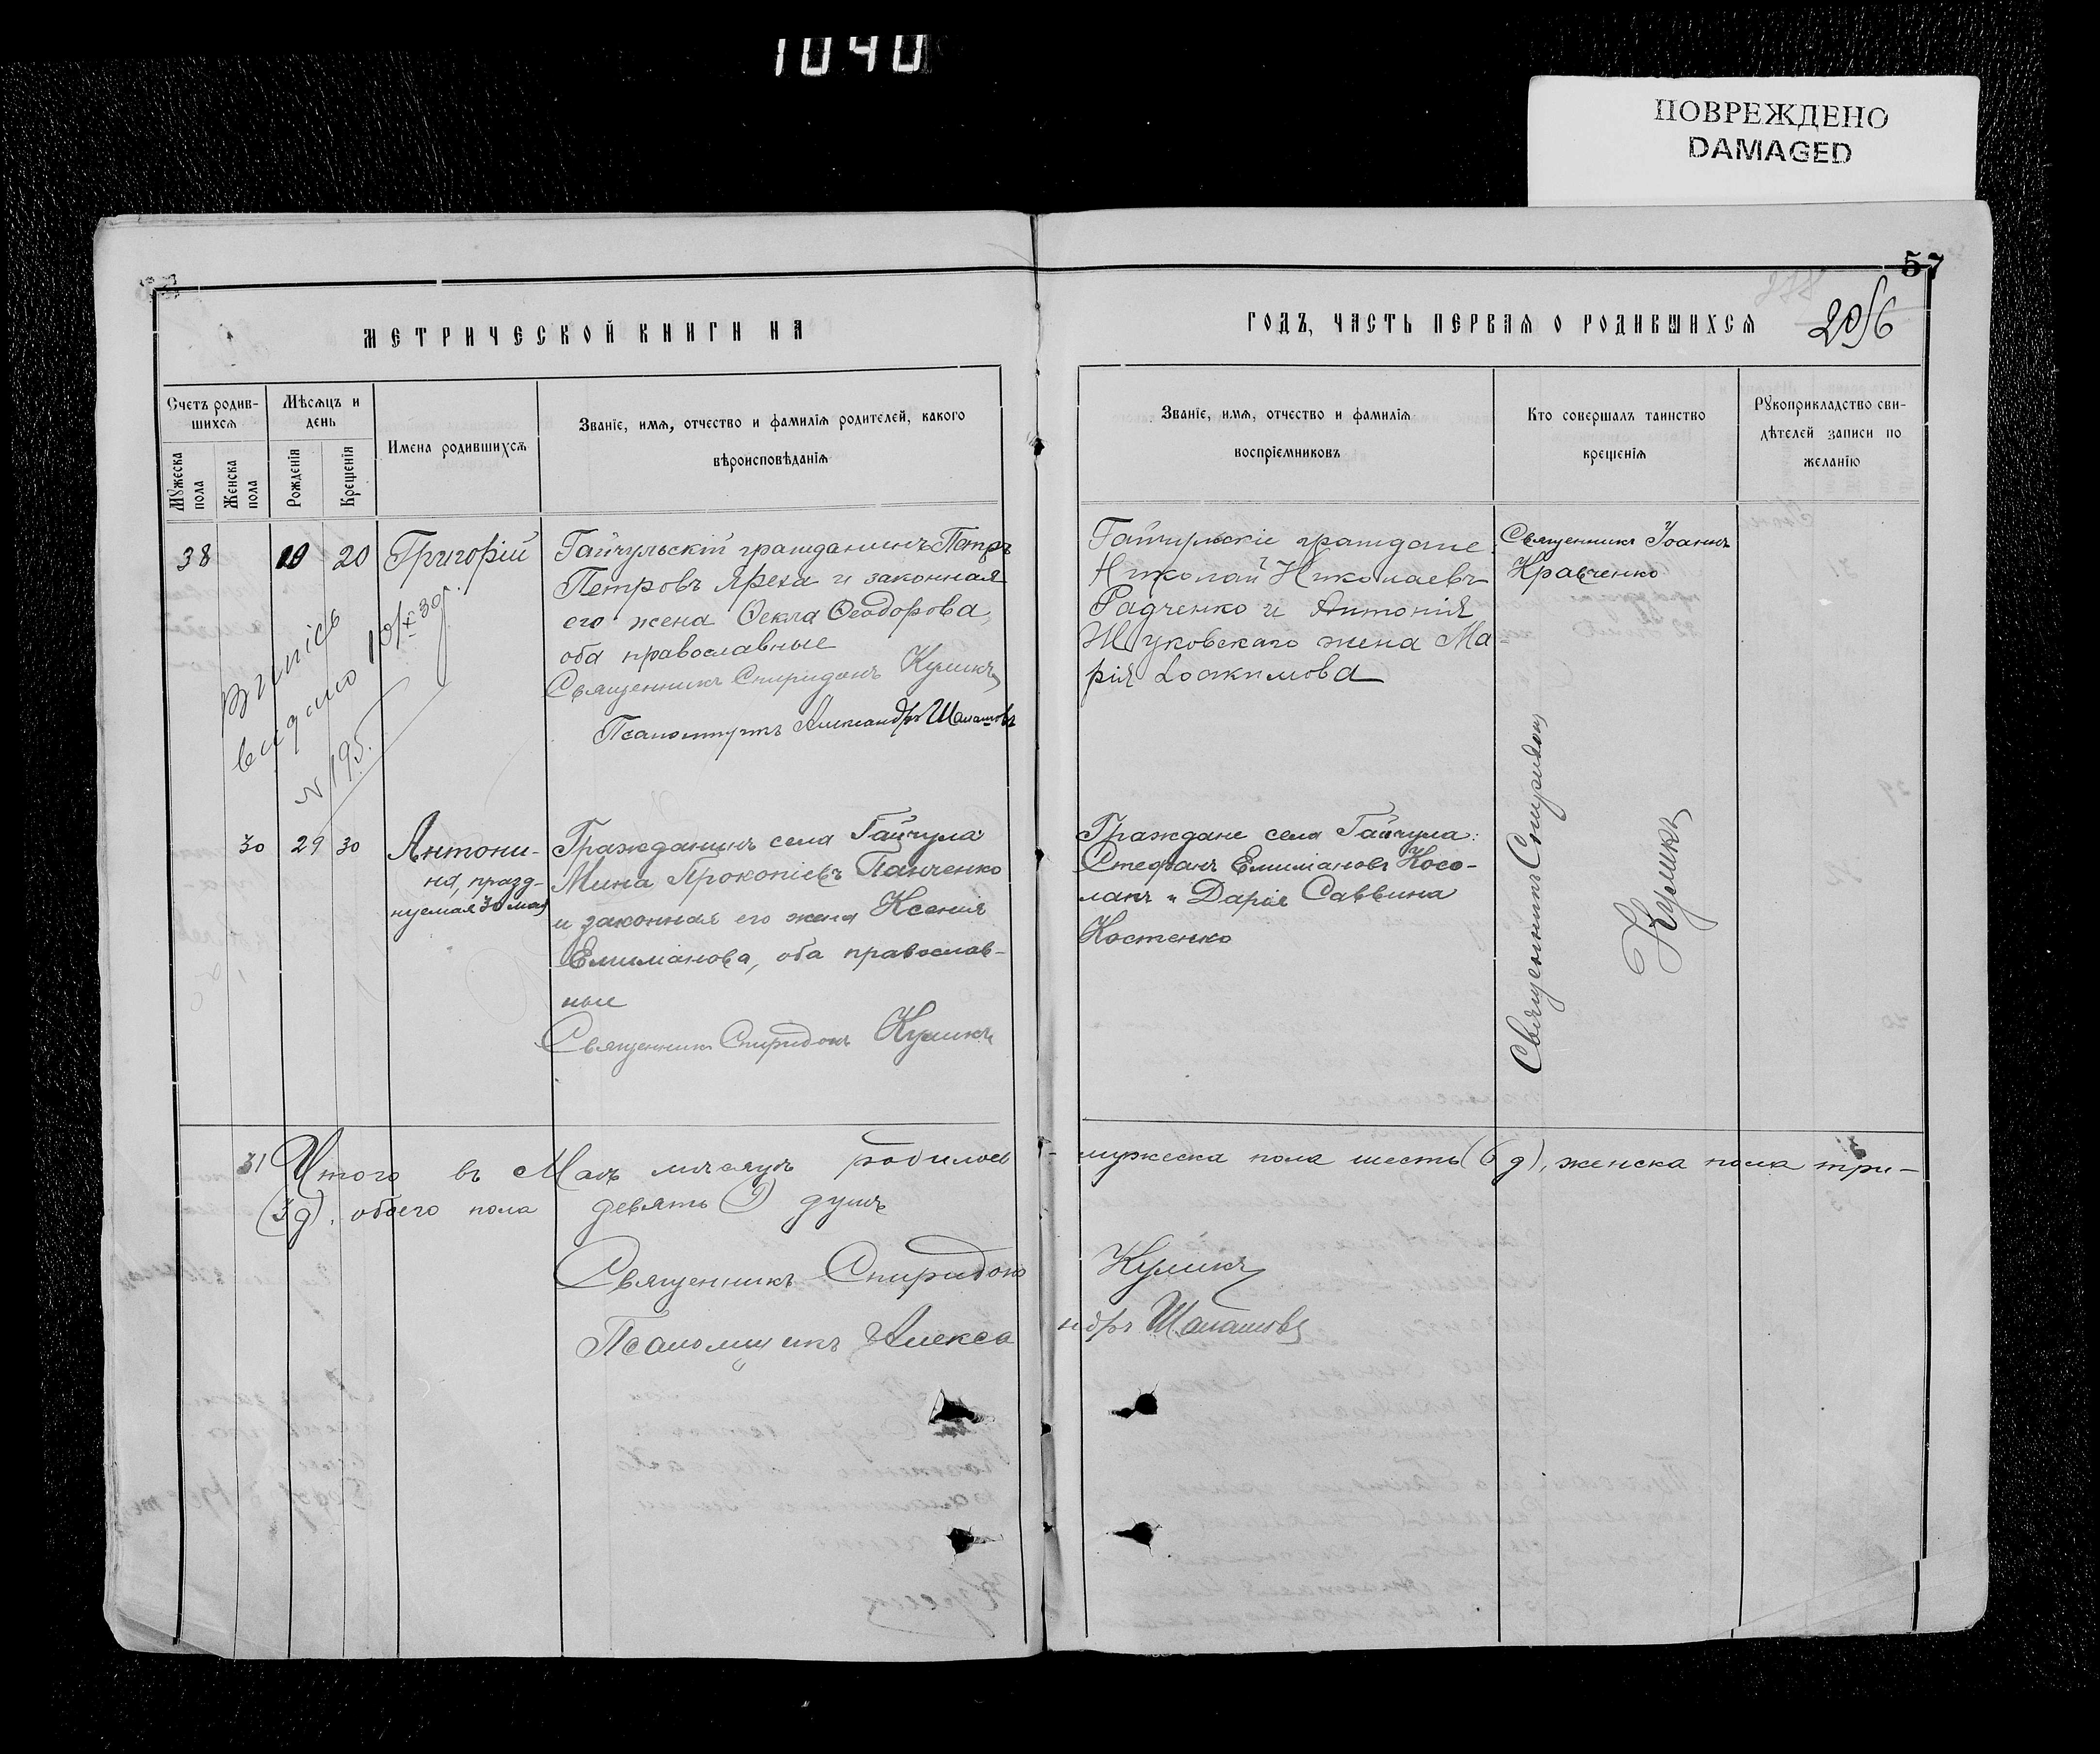 1040
ПОВРЕЖДЕНО
DAMAGED
57
2056
МЕТРИЧЕСКОЙ КНИГИ НА
ГОДЪ, ЧАСТЬ ПЕРВАЯ О РОДИВШИХСЯ
Счетъ родив-
шихся
Мужеска пола
Женска пола
Мѣсяцъ и
день
Рожденія
Крещенія
Имена родившихся
Званіе, имя, отчество и фамилія родителей, какого
вѣроисповѣданія
Званіе, имя, отчество и фамилія
воспріемниковъ
Кто совершалъ таинство
крещенія
Рукоприкладство сви-
дѣтелей записи по
желанію
38 10 20 Григорій
Гайчульскій гражданинъ Петръ
Петровъ Яреха и законная
его жена Ѳекла Ѳеодорова,
оба православные
Священникъ Спиридонъ Куликъ
Псаломщикъ Александръ
Выпись
выдано
N 195.
Гайчульскіе граждане:
Николай Николаевъ
Радченко и Антонія
Жуковскаго жена Ма-
рія Іоакимова
Священникъ Іоаннъ
Кравченко
30 29 30 Антони-
на, празд-
нуемая 30 мая
Гражданинъ села Гайчула
Мина Прокопіевъ Панченко
и законная его жена Ксенія
Емиліанова, оба православ-
ные
Священникъ Спиридонъ Куликъ
Граждане села Гайчула:
Стефанъ Емиліановъ Косо-
лапъ и Дарія Саввина
Костенко
Священникъ Спиридонъ
Куликъ
31 Итого въ Маѣ мѣсяцѣ родилось мужеска пола шесть (6 д), женска пола три-
(3 д), обоего пола девять (9) душъ
Священникъ Спиридонъ Куликъ
Псаломщикъ Александръ